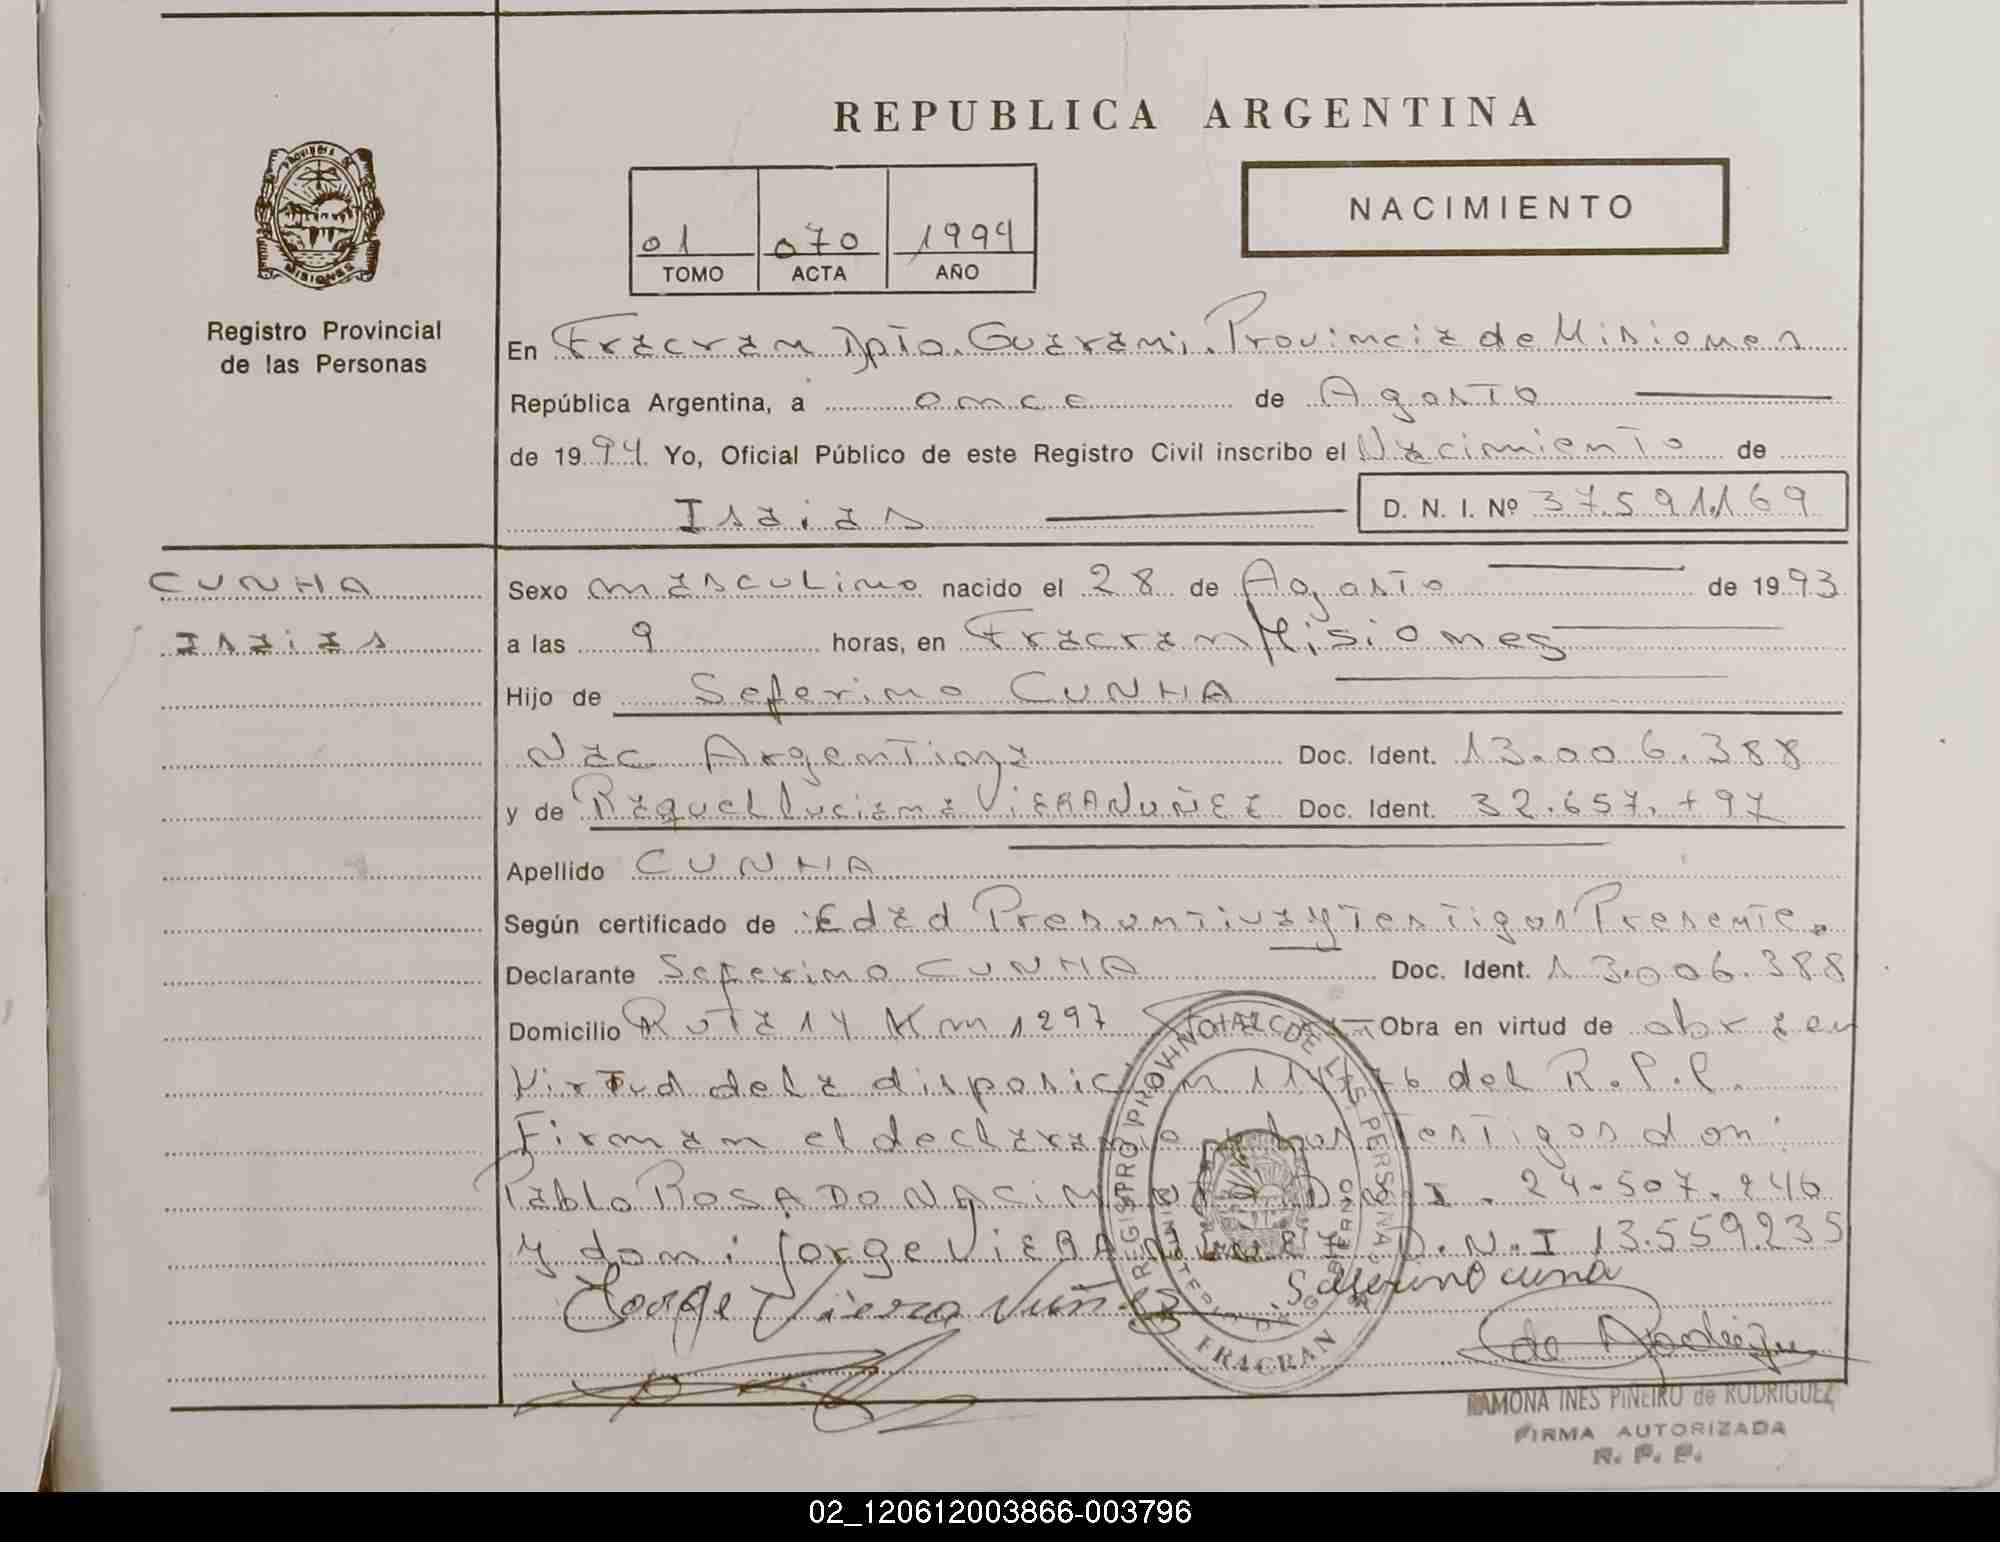 REPUBLICA ARGENTINA
PROVINCIA DE
MISIONES
Registro Provincial
de las Personas
01 070 1994
TOMO ACTA AÑO
NACIMIENTO
En Fracran Dpto. Guarani, Provincia de Misiones
República Argentina, a once de Agosto
de 1994 Yo, Oficial Público de este Registro Civil inscribo el Nacimiento de
Isaias D. N. I. Nº 37.591.169
CUNHA
Isaias
Sexo masculino nacido el 28 de Agosto de 1993
a las 9 horas, en Fracran Misiones
Hijo de Seferino CUNHA
Nac Argentina Doc. Ident. 13.006.388
y de Raquel Luciana ViERA NUÑEZ Doc. Ident. 32.657.797
Apellido CUNHA
Según certificado de Edad Presuntiva y Testigos Presente.
Declarante Seferino CUNHA Doc. Ident. 13.006.388
Domicilio Ruta 14 Km 1297 Obra en virtud de obra en
Virtud de la disposicion del R.P.P.
Firman el declarante y los Testigos don:
Pablo ROSADO NACIMENTO D.N.I. 24.507.246
y don: jorge ViERA NUÑEZ D.N.I 13.559.235
Jorge Viera Nuñez Seferino cuna
REGISTRO PROVINCIAL DE LAS PERSONAS
MINISTERIO DE GOBIERNO
FRACRAN
de Rodriguez
RAMONA INES PIÑEIRO de RODRIGUEZ
FIRMA AUTORIZADA
R. P. P.
02_120612003866-003796